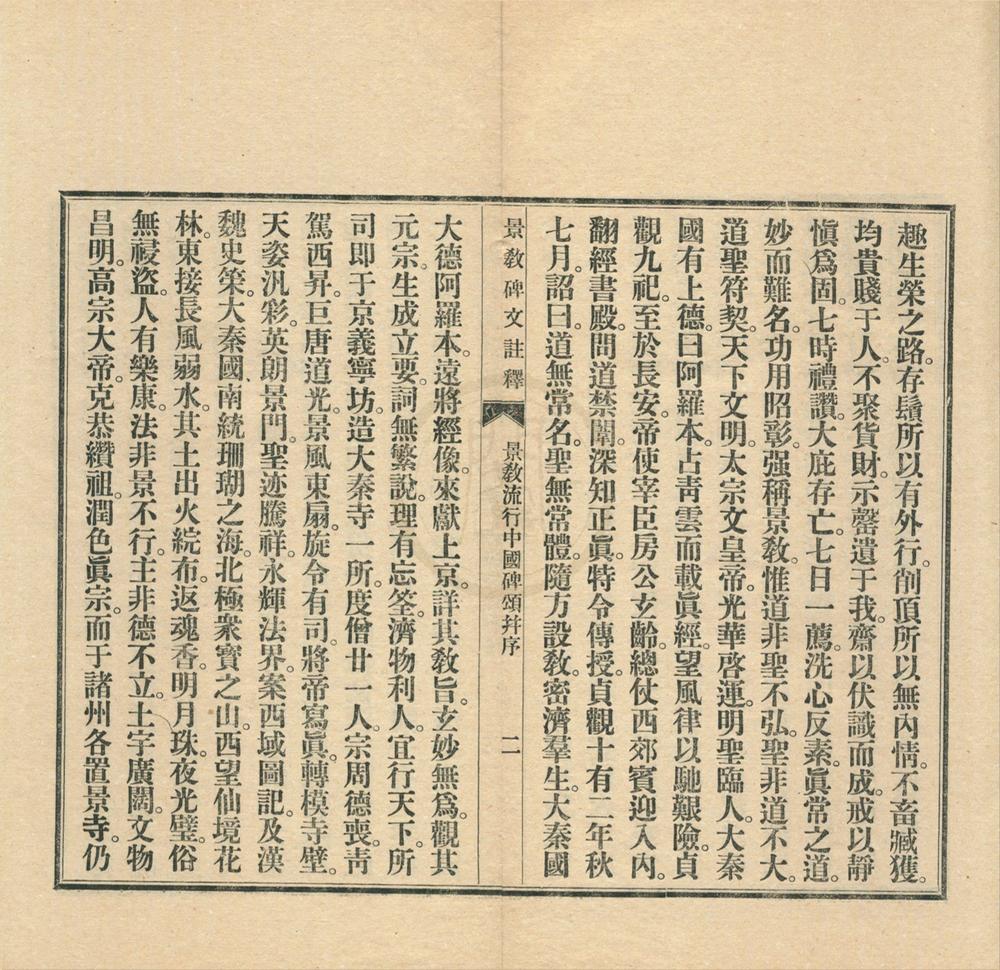 趣生榮之路。存鬚所以有外行。削頂所以無內情。不畜臧獲。
均貴賤于人。不聚貨財。示罄遺于我。齋以伏識而成。戒以靜
愼爲固。七時禮讚。大庇存亡。七日一薦。洗心反素。眞常之道。
妙而難名。功用昭彰。强稱景敎。惟道非聖不弘。聖非道不大。
道聖符契。天下文明。太宗文皇帝。光華啓運。明聖臨人。大秦
國有上德。曰阿羅本。占靑雲而載眞經。望風律以馳艱險。貞
觀九祀。至於長安。帝使宰臣房公玄齡。總仗西郊。賓迎入內。
翻經書殿。問道禁闈。深知正眞。特令傳授。貞觀十有二年秋
七月。詔曰。道無常名。聖無常體。隨方設敎。密濟羣生。大秦國
景敎碑文註釋 景敎流行中國碑頌幷序 二
大德阿羅本。遠將經像。來獻上京。詳其敎旨。玄妙無爲。觀其
元宗。生成立要。詞無繁說。理有忘筌。濟物利人。宜行天下。所
司即于京義寧坊。造大秦寺一所。度僧廿一人。宗周德喪。靑
駕西昇。巨唐道光。景風東扇。旋令有司。將帝寫眞。轉模寺壁。
天姿汎彩。英朗景門。聖迹騰祥。永輝法界。案西域圖記。及漢
魏史策。大秦國南統珊瑚之海。北極衆寶之山。西望仙境花
林。東接長風弱水。其土出火綄布。返魂香。明月珠。夜光璧。俗
無寖盜。人有樂康。法非景不行。主非德不立。土宇廣闊。文物
昌明。高宗大帝。克恭纘祖。潤色眞宗。而于諸州各置景寺。仍